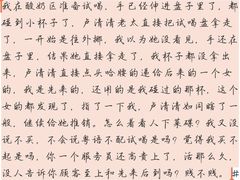 我在酸奶区准备试喝，手已经伸进盘子里了，都
碰到小杯子了，卢清清老太直接把试喝盘拿走
了，一开始是往外挪，我以为她没看见，手还在
盘子里，结果她直接拿走了，我杯子都没拿出
来，卢清清直接点头哈腰的递给后来的一个女
的，我是先来的，还用的是我碰过的那杯，这个
女的都发现了，指了一下我，卢清清如同瞎了一
般，继续给她推销，怎么看着人下菜碟？我又没
说不买，不会说粤语不配试喝是吗？觉得我买不
起是吗，你一个服务员还高贵上了，活那么久，
没人告诉你顾客至上和先来后到吗？贱不贱。#